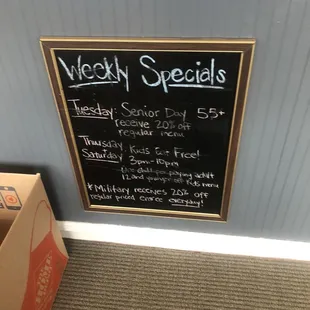 Weekly Specials
Tuesday: Senior Day 55+
receive 20% off
regular menu
Thursday Kids Eat Free!
Saturday 3pm-10pm
per paying adult
12 and younger Kids menu
*Military receives 20% off
regular priced entree everyday!